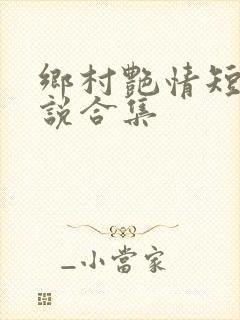 鄉村艷情短
說合集
_小當家